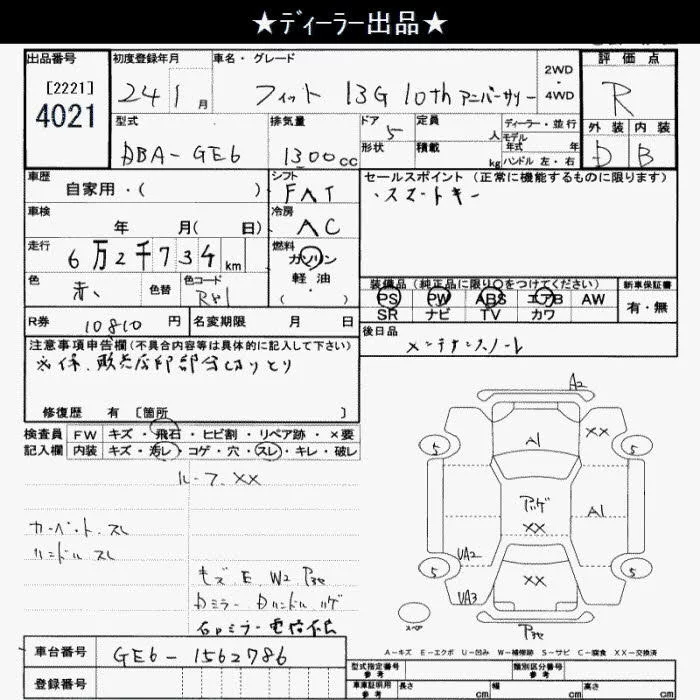 ★ディーラー出品★
出品番号 初度登録年月 車名・グレード 評価点
[2221]
4021
24年 1月 フィット 13G 10th アニバーサリー 2WD・4WD R
型式 排気量 ドア 定員 ディーラー・並行 外装 内装
DBA-GE6 1300cc 5 人 モデル年式 年 D B
形状 積載 kg ハンドル 左・右
車歴 シフト セールスポイント (正常に機能するものに限ります)
自家用・( ) FAT ・スマートキー
車検 冷房
年 月( 日) AC
走行 燃料
6万2千734km ガソリン
軽油
・( )
色 色替 色コード
赤 R81
装備品 (純正品に限り○をつけてください) 新車保証書
PS PW ABS エアB AW 有・無
SR ナビ TV カワ
R券 10810円 名変期限 月 日 後日品
メンテナンスノート
注意事項申告欄(不具合内容等は具体的に記入して下さい)
※保、販売店印部分切りとり
修復歴 有 [箇所 ]
検査員 FW キズ・飛石・ヒビ割・リペア跡・×要
記入欄 内装 キズ・汚レ・コゲ・穴・スレ・キレ・破レ
ルーフ XX
カーペット スレ
ハンドル スレ
キズ E W2
Dミラー Dハンドル ハゲ
A2
A1 XX
5 5
A1
XX
UA2
5 XX 5
UA3
スペア
A-キズ E-エクボ U-凹み W-補修跡 S-サビ C-腐食 XX-交換済
車台番号 GE6-1562786
登録番号
型式指定番号 参考 類別区分番号 参考
車車証明用 参考 長さ cm 幅 cm 高さ cm